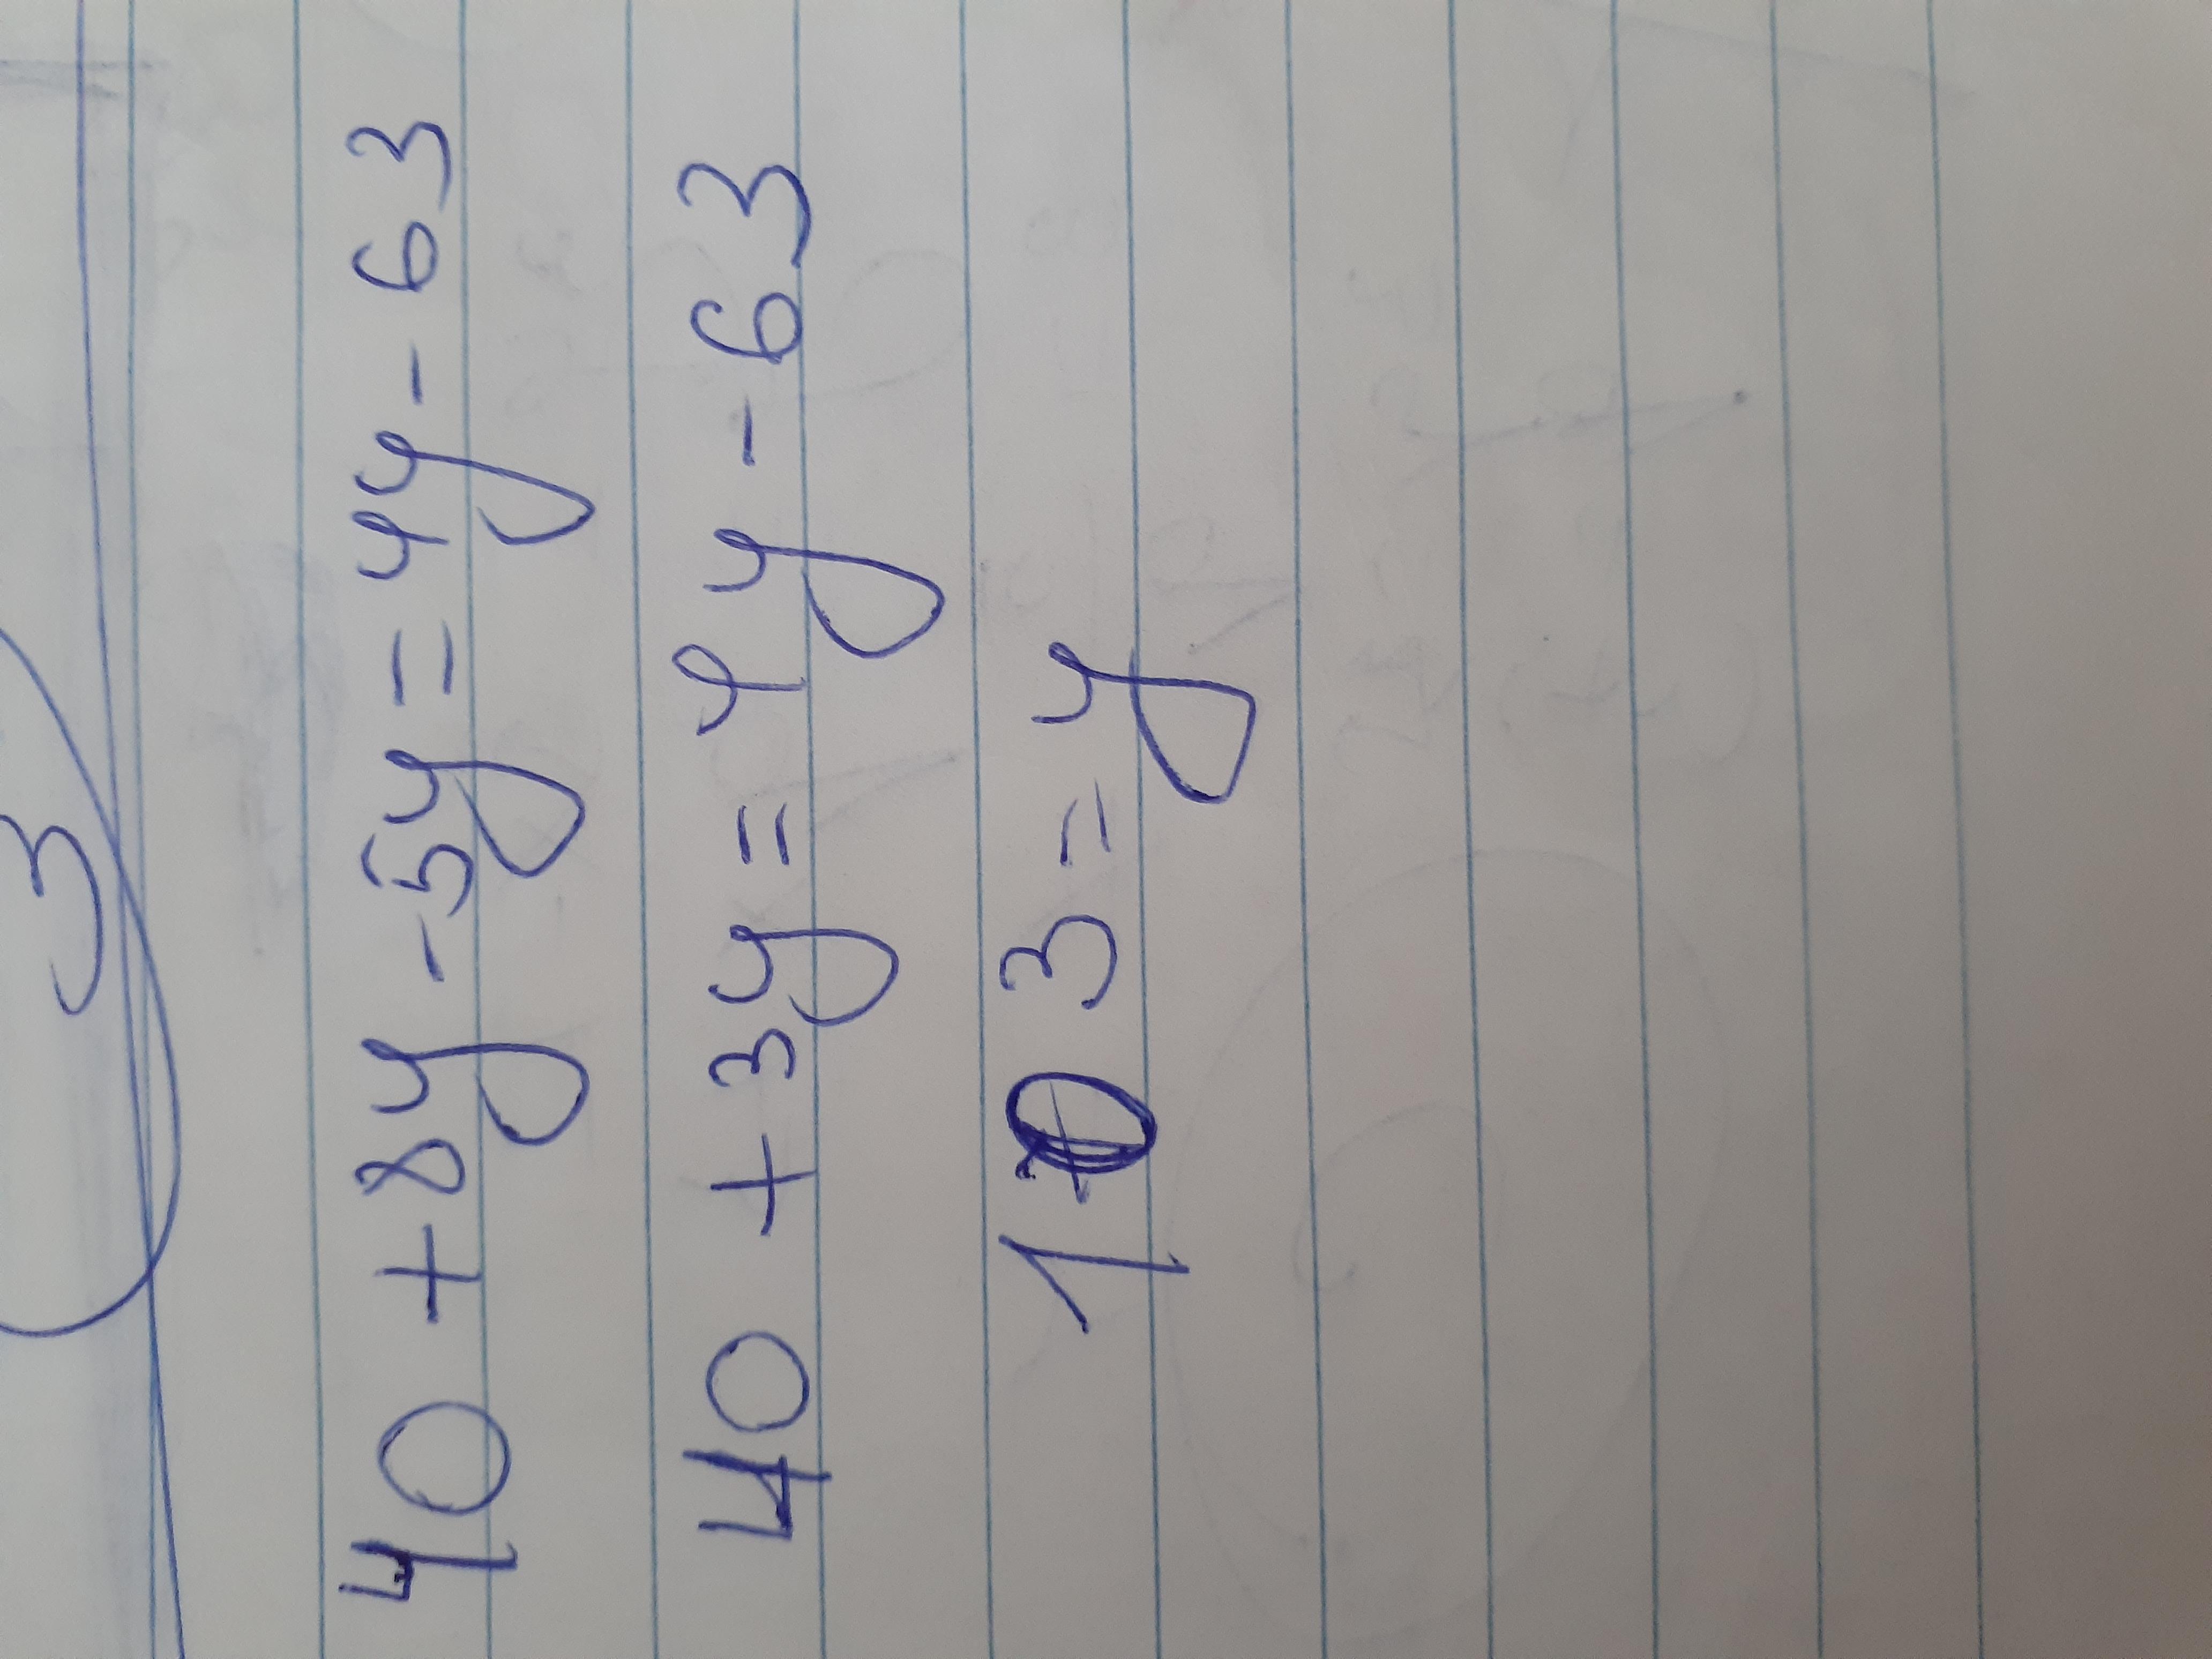 3
40 + 8y - 5y = 4y - 63
40 + 3y = 4y - 63
103 = y